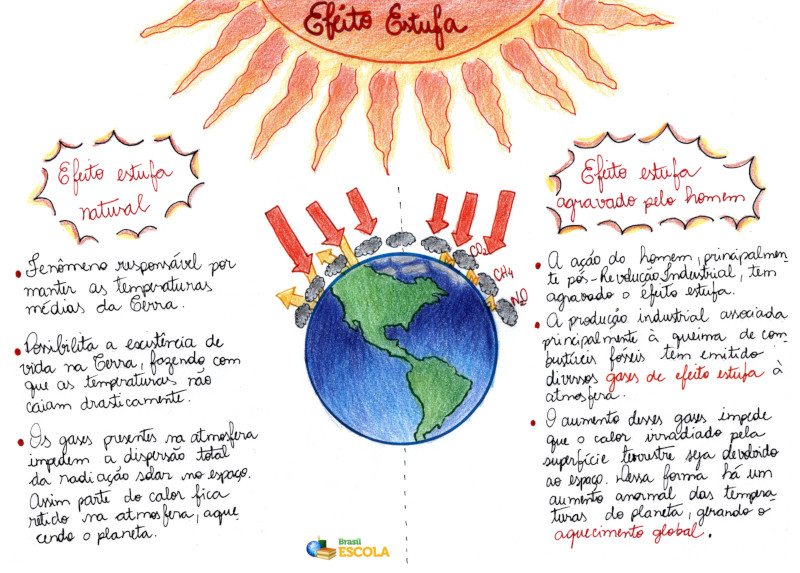 Efeito Estufa
Efeito estufa
natural
Fenômeno responsável por
manter as temperaturas
médias da Terra.
Possibilita a existência de
vida na Terra, fazendo com
que as temperaturas não
caiam drasticamente.
Os gases presentes na atmosfera
impedem a dispersão total
da radiação solar no espaço.
Assim parte do calor fica
retido na atmosfera, aque
cendo o planeta.
CO₂
CH₄
N₂O
Efeito estufa
agravado pelo homem
A ação do homem, principalmen-
te pós-Revolução Industrial, tem
agravado o efeito estufa.
A produção industrial associada
principalmente à queima de com-
bustíveis fósseis tem emitido
diversos gases de efeito estufa à
atmosfera.
O aumento desses gases impede
que o calor irradiado pela
superfície terrestre seja devolvido
ao espaço. Dessa forma há um
aumento anormal das tempera-
turas do planeta, gerando o
aquecimento global.
Brasil
ESCOLA